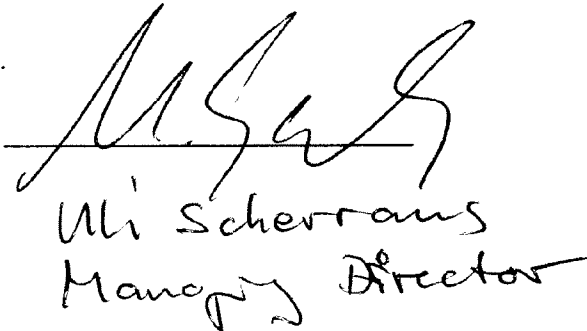 Uli Scherraus
Managing Director